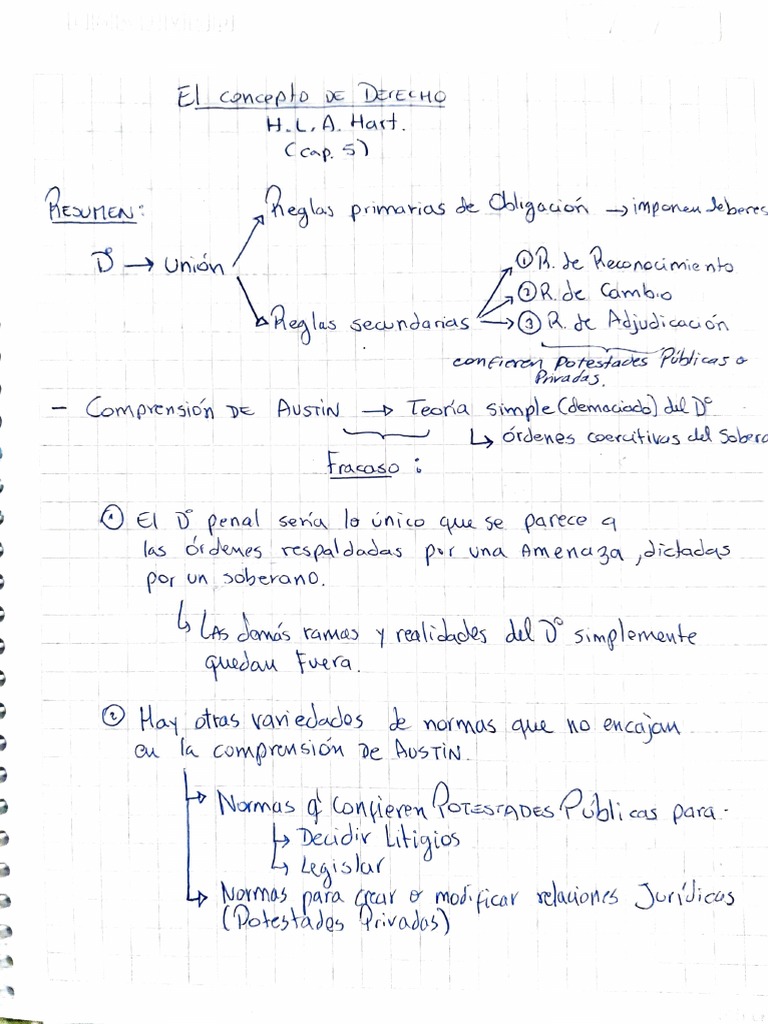 El concepto DE DERECHO
H. L. A. Hart.
(cap. 5)
RESUMEN:
Reglas primarias de Obligación → imponen deberes
D° → Unión
① R. de Reconocimiento
② R. de Cambio
Reglas secundarias → ③ R. de Adjudicación
confieren Potestades Públicas o
Privadas.
- Comprensión DE AUSTIN → Teoría simple (demaciado) del D°
↳ órdenes coercitivas del Sobera
Fracaso :
① El D° penal sería lo único que se parece a
las órdenes respaldadas por una Amenaza, dictadas
por un soberano.
↳ LAS demás ramas y realidades del D° simplemente
quedan fuera.
② Hay otras variedades de normas que no encajan
en la comprensión DE AUSTIN.
↳ Normas q' confieren POTESTADES Públicas para.
↳ Decidir Litigios
↳ Legislar
↳ Normas para crear o modificar relaciones Jurídicas
(Potestades Privadas)